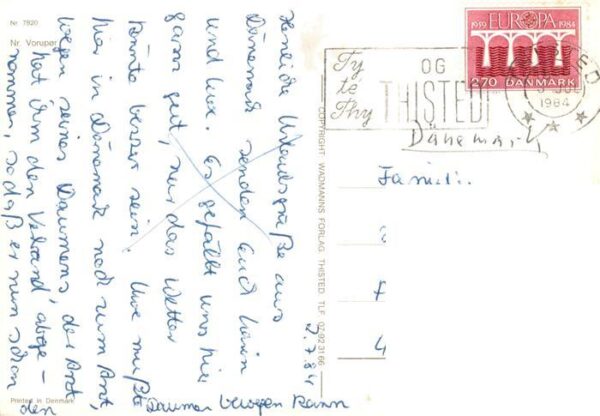 Nr. 7820
Nr. Vorupør
Herzliche Urlaubsgrüße aus
Dänemark senden Euch Karin
und Uwe. Es gefällt uns hier
ganz gut, nur das Wetter
könnte besser sein. Uwe mußte
hier in Dänemark noch zum Arzt,
wegen seines Daumens, der Arzt
hat ihm den Verband abge-
nommen, sodaß er nun schon den
Daumen bewegen kann
2.7.84
Printed in Denmark
COPYRIGHT WADMANNS FORLAG THISTED TLF 02.92 31 66
1959 EUROPA 1984
270 DANMARK
Ty
te
Thy
OG
THISTED
1984
Dänemark
Famili
F
4